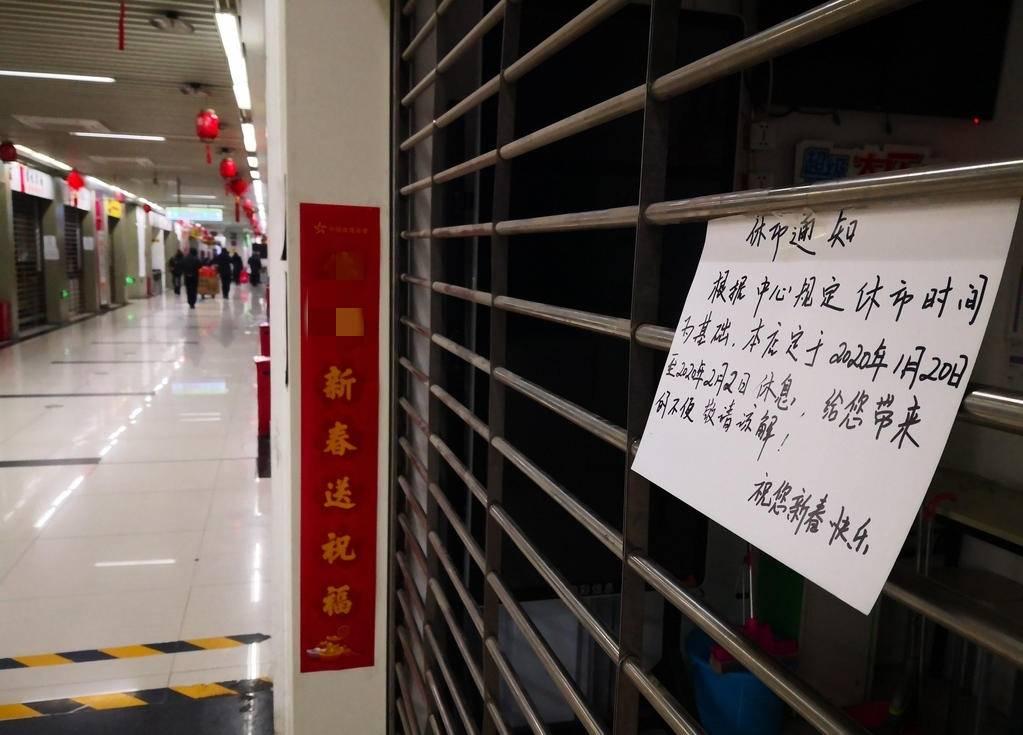 新春送祝福
休市通知
根据中心规定休市时间
为基础,本店定于2020年1月20日
至2020年2月2日休息,给您带来
的不便敬请谅解!
祝您新春快乐.